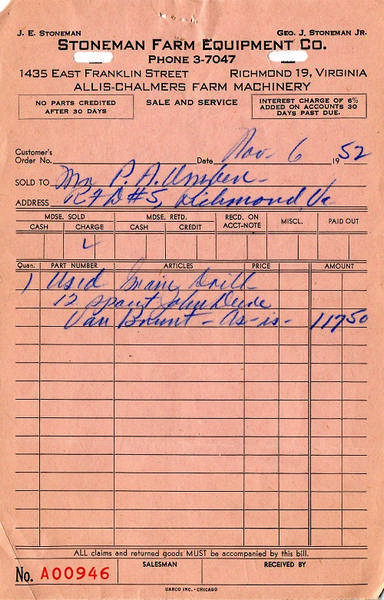 J. E. STONEMAN GEO. J. STONEMAN JR.
STONEMAN FARM EQUIPMENT CO.
PHONE 3-7047
1435 EAST FRANKLIN STREET RICHMOND 19, VIRGINIA
ALLIS-CHALMERS FARM MACHINERY
NO PARTS CREDITED AFTER 30 DAYS
SALE AND SERVICE
INTEREST CHARGE OF 6% ADDED ON ACCOUNTS 30 DAYS PAST DUE.
Customer's
Order No. Date Nov. 6 1952
SOLD TO Mr P. A.
ADDRESS RFD #5, Richmond Va
MDSE. SOLD MDSE. RETD. RECD. ON ACCT-NOTE MISCL. PAID OUT
CASH CHARGE CASH CREDIT
Quan. PART NUMBER ARTICLES PRICE AMOUNT
1 Used Grain Drill
12 spout John Deere
Van Brunt - as - is - 117 50
ALL claims and returned goods MUST be accompanied by this bill.
No. A00946 SALESMAN RECEIVED BY
GARCO INC.-CHICAGO